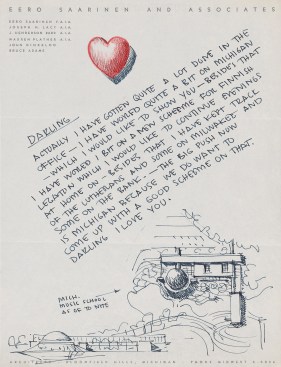 EERO SAARINEN AND ASSOCIATES
EERO SAARINEN F.A.I.A.
JOSEPH N. LACY A.I.A.
J. HENDERSON BARR A.I.A.
JOHN DINKELOO
DARLING —
ACTUALLY I HAVE GOTTEN QUITE A LOT DONE IN THE
OFFICE — I HAVE WORKED QUITE A BIT ON MICHIGAN
— WHICH I WOULD LIKE TO SHOW YOU — BESIDES THAT
I HAVE WORKED A BIT ON A NEW SCHEME FOR FINNISH
LEGATION WHICH I WOULD LIKE TO CONTINUE EVENINGS
AT HOME ON — BESIDES THAT I HAVE KEPT TRACK
OF THE LUTHERANS AND SOME ON MILWAUKEE AND
SOME ON THE BANK. — THE BIG PUSH NOW
IS MICHIGAN BECAUSE WE DO WANT TO
COME UP WITH A GOOD SCHEME ON THAT.
DARLING I LOVE YOU.
MICH.
MUSIC SCHOOL
AS OF TO NITE
ARCHITECTS BLOOMFIELD HILLS, MICHIGAN PHONE MIDWEST